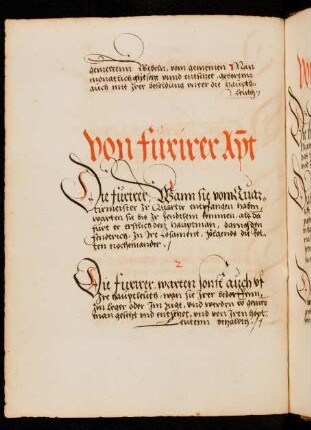 gemeltenn Webeln, vom gemeinen Man
monatlich gesetzt unnd entsetzt,
auch mit Irer besoldung unter die haupt
leuth
von fürirer Ampt
Die fürirer, Wann sie vom Quar
tiermeister Ir Quartir empfangen haben,
warten sie bis Ir fendtlein kommen, als da
fürt er erstlich den hauptman, darnach den
fenderich, zu Ire Losament, folgends die Rot
ten nacheinander ./
2
Die fürirer, warten sonst auch uf
Ire Hauptleuth, wan sie Irer bedorffenn,
Im leger oder Im zug, und werden vom gemei
man gesetzt und entsetzet, und von Iren haupt
leutenn